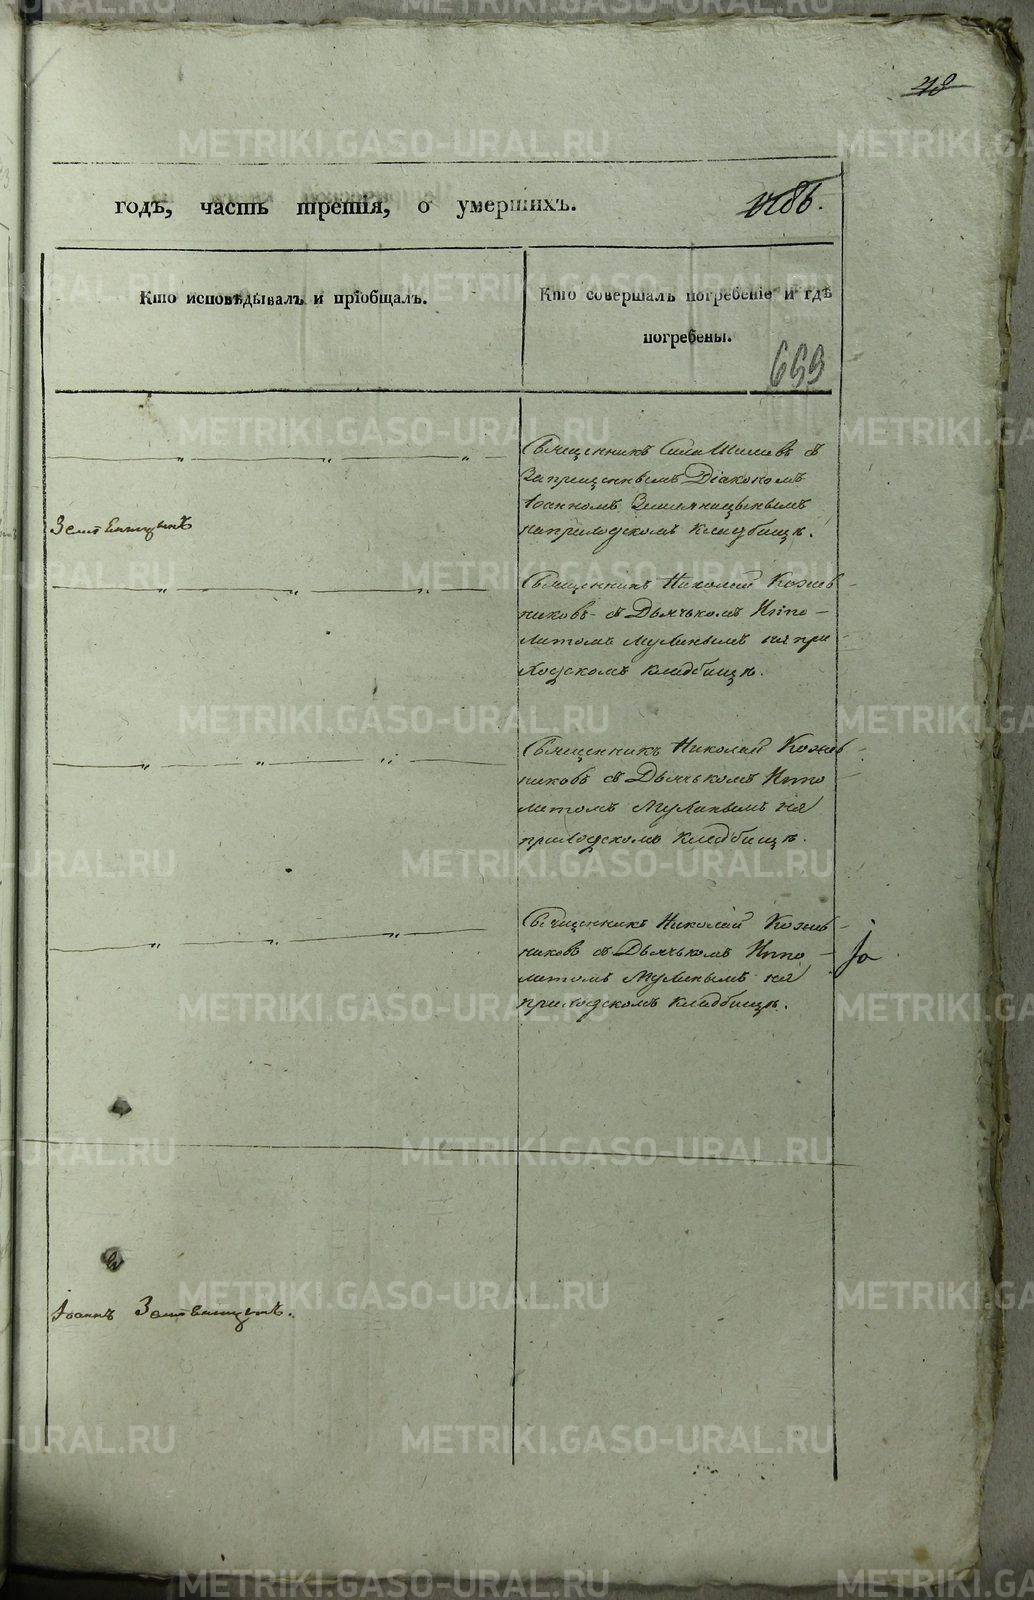 48
годъ, часть третія, о умершихъ.
Кто исповѣдывалъ и пріобщалъ.
Кто совершалъ погребеніе и гдѣ
погребены.
699
Священникъ Сила съ
Запрещеннымъ Діакономъ
Іоанномъ Земляницынымъ
на приходскомъ кладбищѣ.
Священникъ Николай Кожев
никовъ съ Дьячькомъ Иппо
литомъ на при
ходскомъ кладбищѣ.
Священникъ Николай Кожев
никовъ съ Дьячькомъ Иппо
литомъ на
приходскомъ кладбищѣ.
Священникъ Николай Кожев
никовъ съ Дьячькомъ Иппо
литомъ на
приходскомъ кладбищѣ.
Іоаннъ
METRIKI.GASO-URAL.RU